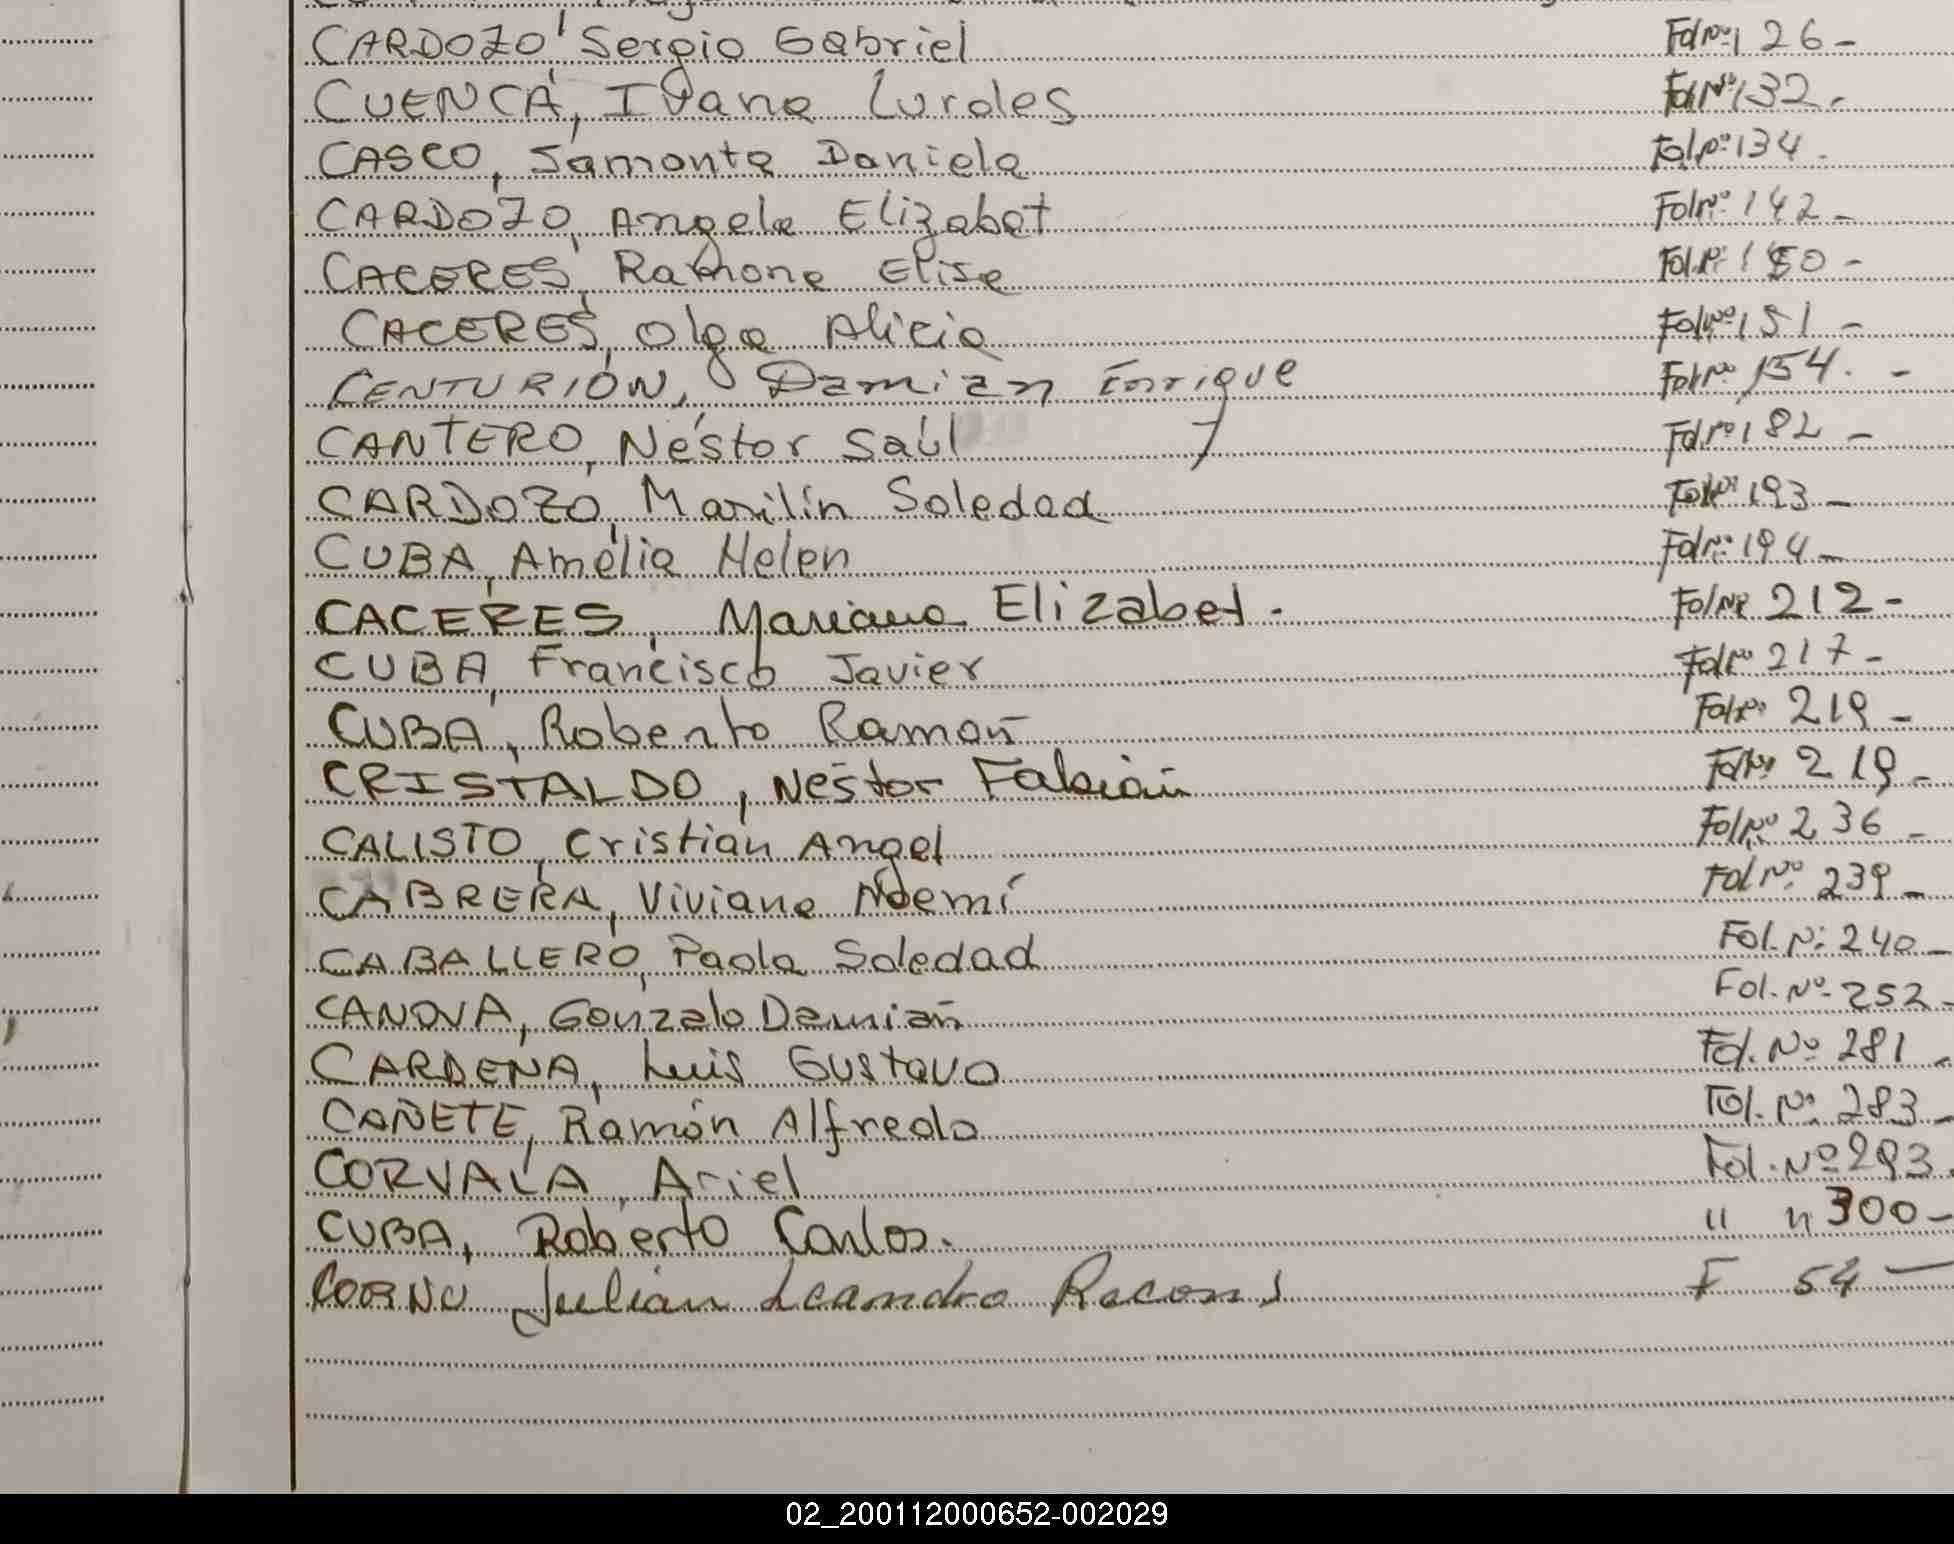 CARDOZO, Sergio Gabriel Fol Nº 126-
CUENCA, Ivana Lurdes Fol Nº 132-
CASCO, Samanta Daniela Fol Nº 134-
CARDOZO, Angela Elizabet Fol Nº 142-
CACERES, Ramona Elisa Fol Nº 150-
CACERES, Olga Alicia Fol Nº 151-
CENTURIÓN, Damián Enrique Fol Nº 154. -
CANTERO, Néstor Saúl Fol Nº 182-
CARDOZO, Marilín Soledad Fol Nº 193-
CUBA, Amelia Helen Fol Nº 194-
CACERES, Mariana Elizabet. Fol Nº 212-
CUBA, Francisco Javier Fol Nº 217-
CUBA, Roberto Ramón Fol Nº 219-
CRISTALDO, Néstor Fabián Fol Nº 219-
CALISTO, Cristian Angel Fol Nº 236-
CABRERA, Viviana Noemí Fol Nº 239-
CABALLERO, Paola Soledad Fol. Nº 240-
CANOVA, Gonzalo Damián Fol. Nº 252-
CARDENA, Luis Gustavo Fol. Nº 281-
CAÑETE, Ramón Alfredo Fol. Nº 283-
CORVALA, Ariel Fol. Nº 293-
CUBA, Roberto Carlos. " " 300-
Julian Leandro F 54-
02_200112000652-002029